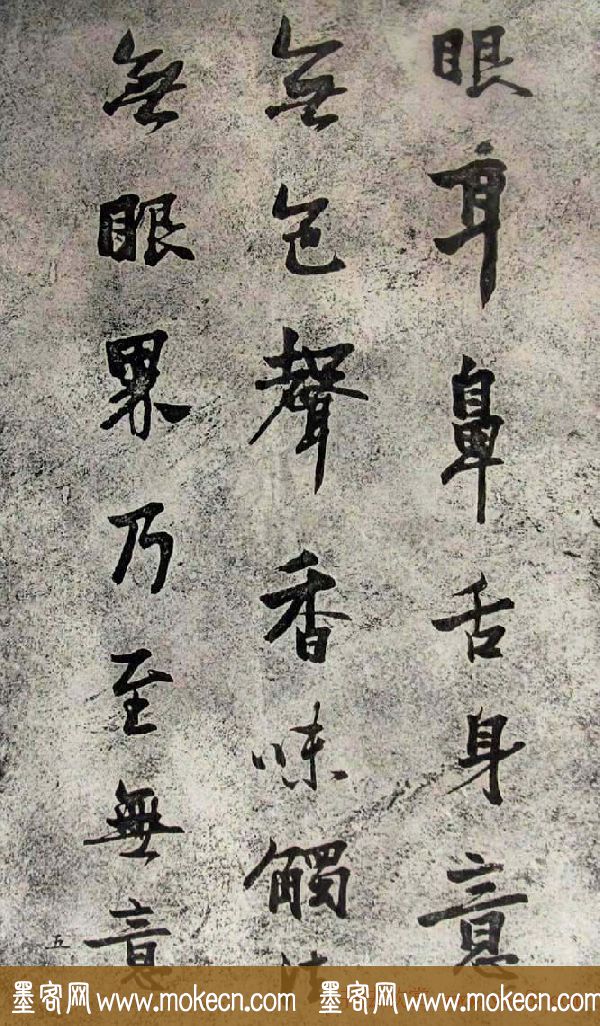 眼耳鼻舌身意
無色聲香味觸法
無眼界乃至無意
五
墨客网 www.mokecn.com 墨客网 www.mokecn.com